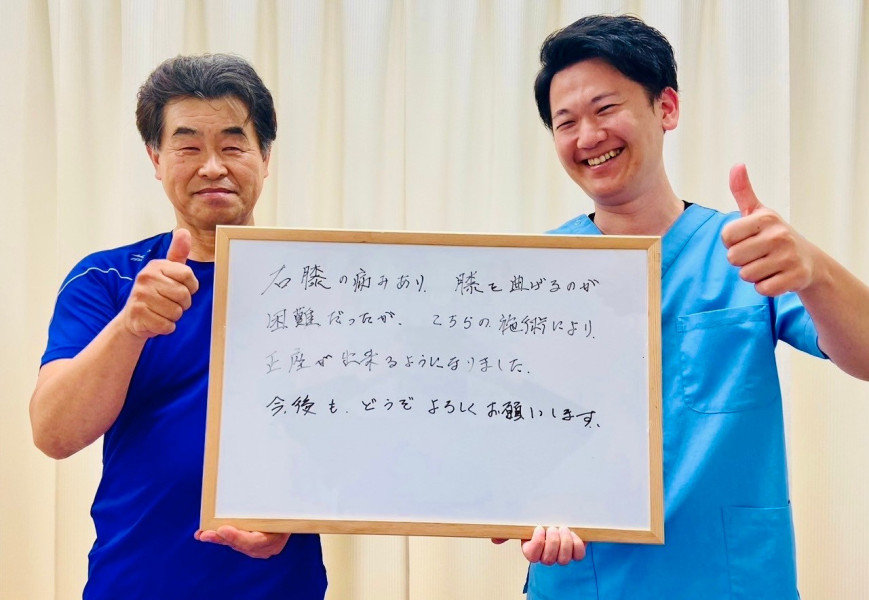 右膝の痛みあり、膝を曲げるのが
困難だったが、こちらの施術により、
正座が出来るようになりました。
今後も、どうぞよろしくお願いします。